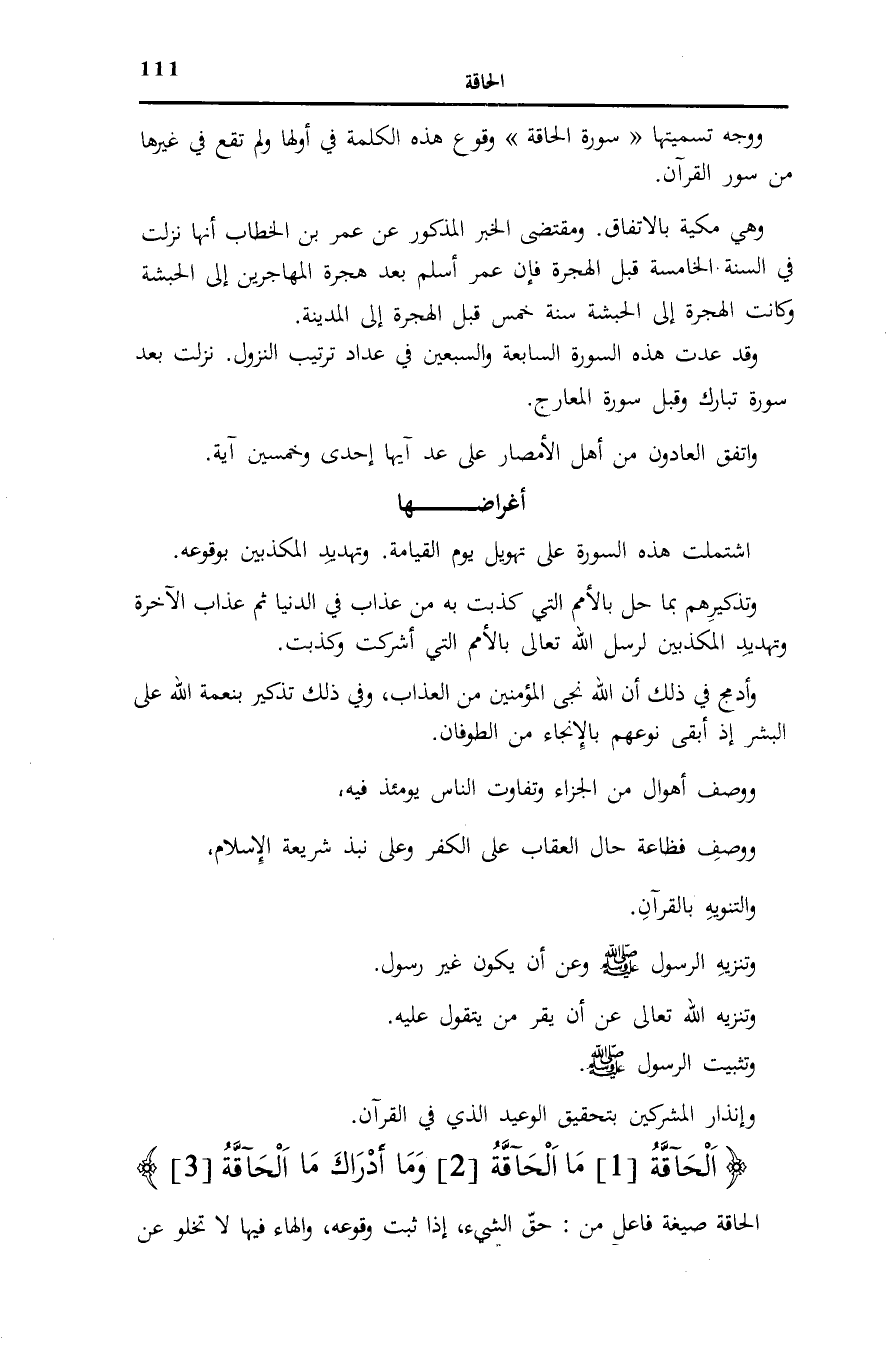 111
الحاقة
ووجه تسميتها « سورة الحاقة » وقوع هذه الكلمة في أولها ولم تقع في غيرها
من سور القرآن.
وهي مكية بالاتفاق. ومقتضى الخبر المذكور عن عمر بن الخطاب أنها نزلت
في السنة الخامسة قبل الهجرة فإن عمر أسلم بعد هجرة المهاجرين إلى الحبشة
وكانت الهجرة إلى الحبشة سنة خمس قبل الهجرة إلى المدينة.
وقد عدت هذه السورة السابعة والسبعين في عداد ترتيب النزول. نزلت بعد
سورة تبارك وقبل سورة المعارج.
واتفق العادون من أهل الأمصار على عد آيها إحدى وخمسين آية.
أغراضـــــــها
اشتملت هذه السورة على تهويل يوم القيامة. وتهديدِ المكذبين بوقوعه.
وتذكيرِهم بما حل بالأمم التي كذبت به من عذاب في الدنيا ثم عذاب الآخرة
وتهديدِ المكذبين لرسل الله تعالى بالأمم التي أشركت وكذبت.
وأدمج في ذلك أن الله نجى المؤمنين من العذاب، وفي ذلك تذكير بنعمة الله على
البشر إذ أبقى نوعهم بالإنجاء من الطوفان.
ووصف أهوال من الجزاء وتفاوت الناس يومئذ فيه،
ووصفِ فظاعة حال العقاب على الكفر وعلى نبذ شريعة الإسلام،
والتنويهِ بالقرآنِ.
وتنزيهِ الرسول ﷺ وعن أن يكون غير رسول.
وتنزيه الله تعالى عن أن يقر من يتقول عليه.
وتثبيت الرسول ﷺ.
وإنذار المشركين بتحقيق الوعيد الذي في القرآن.
﴿ اَلْحَآقَّةُ [1] مَا اَلْحَآقَّةُ [2] وَمَا أَدْرَاكَ مَا اَلْحَآقَّةُ [3] ﴾
الحاقة صيغة فاعل من : حقّ الشيء، إذا ثبت وقوعه، والهاء فيها لا تخلو عن